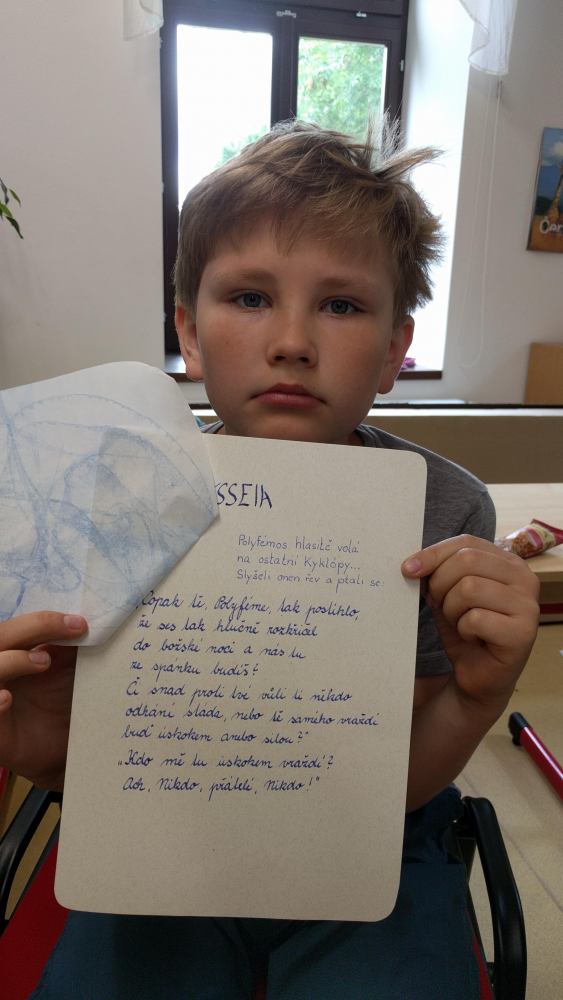 SSEIA
Polyfémos hlasitě volá
na ostatní Kyklópy...
Slyšeli onen řev a ptali se:
„Copak tě, Polyféme, tak postihlo,
že ses tak hlučně rozkřičel
do božské noci a nás tu
ze spánku budíš?
Či snad proti tvé vůli ti někdo
odhání stáda, nebo tě samého vraždí
buď úskokem anebo silou?"
„Kdo mě tu úskokem vraždí?
Ach, Nikdo, přátelé, Nikdo!"